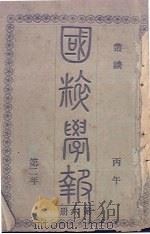 叢譚
丙午
國粹學報
第二年